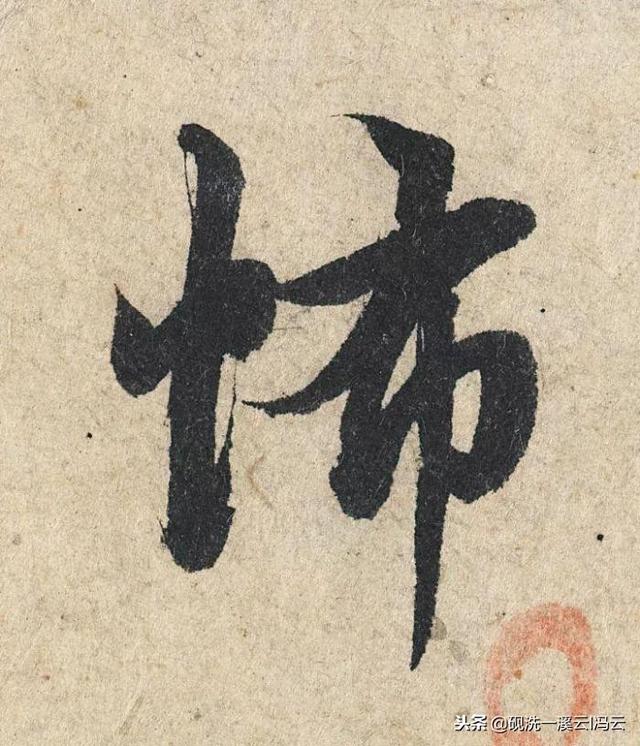 怖
头条 @砚洗一溪云l冯云